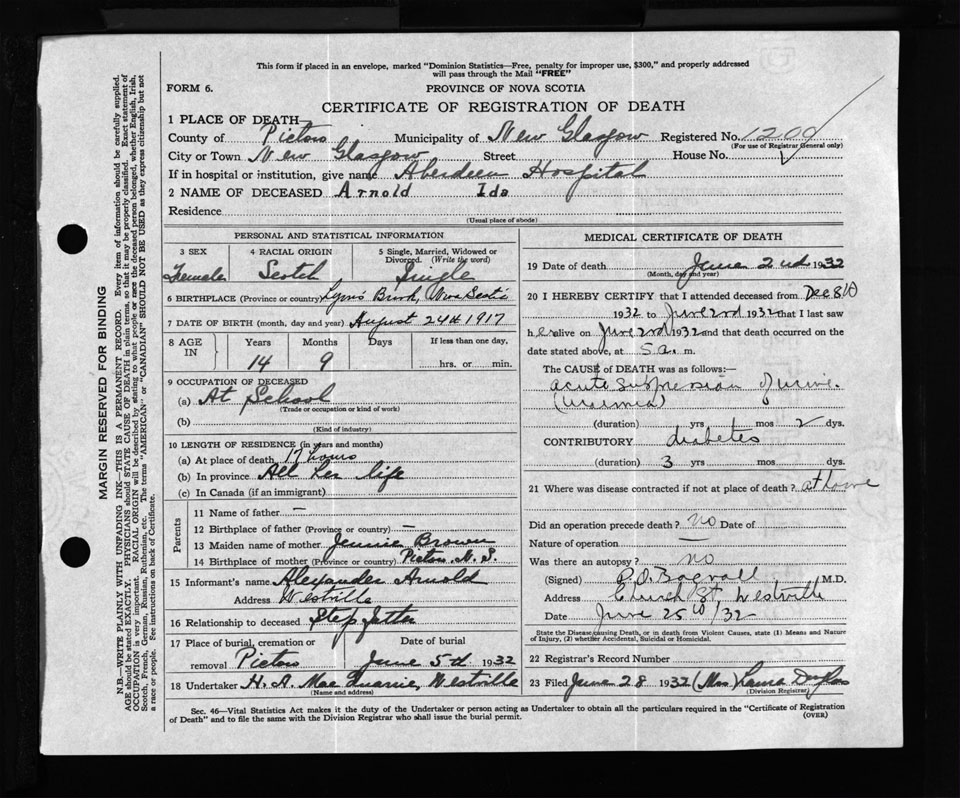 This form if placed in an envelope, marked "Dominion Statistics—Free, penalty for improper use, $300," and properly addressed
will pass through the Mail "FREE"
FORM 6.
PROVINCE OF NOVA SCOTIA
CERTIFICATE OF REGISTRATION OF DEATH
1 PLACE OF DEATH—
County of Pictou Municipality of New Glasgow Registered No. 1200
(For use of Registrar General only)
City or Town New Glasgow Street House No.
If in hospital or institution, give name Aberdeen Hospital
2 NAME OF DECEASED Arnold Ida
Residence
(Usual place of abode)
PERSONAL AND STATISTICAL INFORMATION
3 SEX 4 RACIAL ORIGIN 5 Single, Married, Widowed or
Divorced. (Write the word)
Female Scotch Single
6 BIRTHPLACE (Province or country) Lyon's Brook, Nova Scotia
7 DATE OF BIRTH (month, day and year) August 24th 1917
8 AGE IN Years Months Days If less than one day,
14 9 hrs. or min.
9 OCCUPATION OF DECEASED
(a) At School
(Trade or occupation or kind of work)
(b)
(Kind of industry)
10 LENGTH OF RESIDENCE (in years and months)
(a) At place of death 17 hours
(b) In province All her life
(c) In Canada (if an immigrant)
Parents
11 Name of father —
12 Birthplace of father (Province or country) —
13 Maiden name of mother Jennie Brown
14 Birthplace of mother (Province or country) Pictou N. S.
15 Informant's name Alexander Arnold
Address Westville
16 Relationship to deceased Step father
17 Place of burial, cremation or Date of burial
removal Pictou June 5th 1932
18 Undertaker H. A. MacQuarrie, Westville
(Name and address)
MEDICAL CERTIFICATE OF DEATH
19 Date of death June 2nd 1932
(Month, day and year)
20 I HEREBY CERTIFY that I attended deceased from Dec 8th
1932 to June 2nd 1932 that I last saw
her alive on June 2nd 1932 and that death occurred on
date stated above, at 5 a. m.
The CAUSE OF DEATH was as follows:—
acute suppression of urine.
(Uraemia)
(duration) yrs mos 2 dys.
CONTRIBUTORY diabetes
(duration) 3 yrs mos. dys.
21 Where was disease contracted if not at place of death? at home
Did an operation precede death? no Date of
Nature of operation —
Was there an autopsy? no
(Signed) M.D.
Address Church St. Westville
Date June 25th /32
State the Disease causing Death, or in death from Violent Causes, state (1) Means and Nature
of Injury, (2) whether Accidental, Suicidal or Homicidal.
22 Registrar's Record Number
23 Filed June 28 1932 (Mrs) Laura Douglas
(Division Registrar)
Sec. 46—Vital Statistics Act makes it the duty of the Undertaker or person acting as Undertaker to obtain all the particulars required in the "Certificate of Registration
of Death" and to file the same with the Division Registrar who shall issue the burial permit.
(OVER)
MARGIN RESERVED FOR BINDING
N.B.—WRITE PLAINLY WITH UNFADING INK—THIS IS A PERMANENT RECORD. Every item of information should be carefully supplied.
AGE should be stated EXACTLY. PHYSICIANS should STATE CAUSE OF DEATH in plain terms, so that it may be properly classified. Exact statement of
OCCUPATION is very important. RACIAL ORIGIN will be described by stating to what people or race the deceased person belonged, whether English, Irish,
Scotch, French, German, Russian, Ruthenian, etc. The terms "AMERICAN" or "CANADIAN" SHOULD NOT BE USED as they express citizenship but not
a race or people. See instructions on back of Certificate.